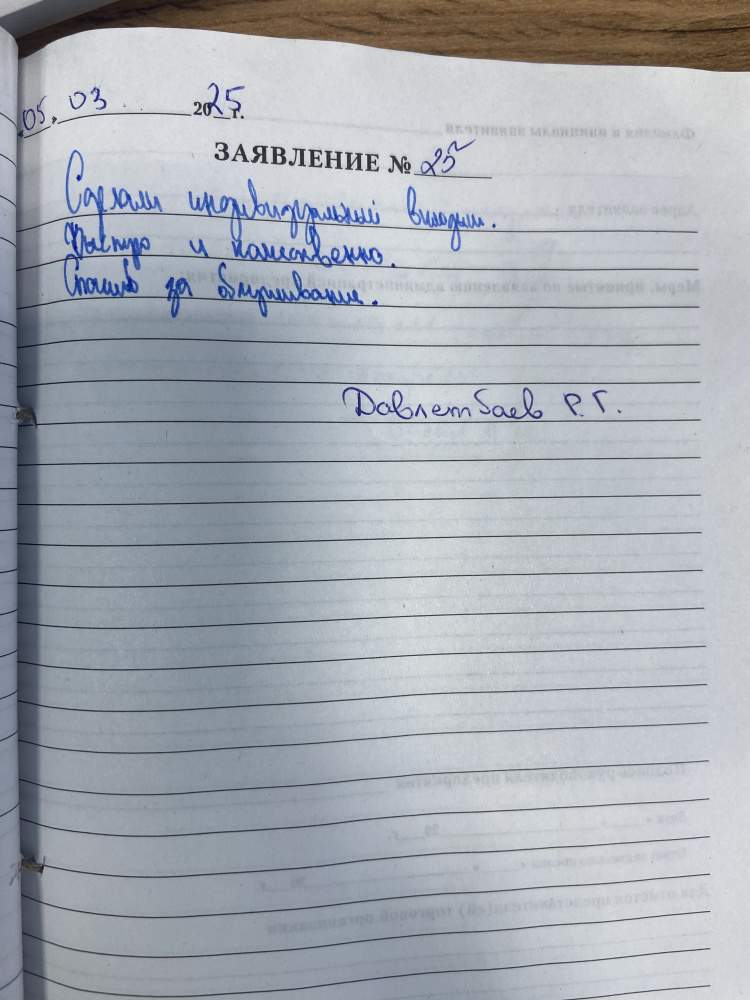 05.03 2025 г.
ЗАЯВЛЕНИЕ № 25
Сделали индивидуальный вкладыш.
Быстро и качественно.
Спасибо за обслуживание.
Давлетбаев Р.Г.